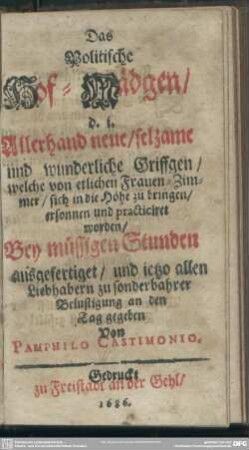 Das
Politische
Hof-Mädgen/
d. i.
Allerhand neue/ selzame
und wunderliche Griffgen/
welche von etlichen Frauen-Zim-
mer/ sich in die Höhe zu bringen/
ersonnen und practiciret
worden/
Bey müssigen Stunden
ausgefertiget/ und ietzo allen
Liebhabern zu sonderbahrer
Belustigung an den
Tag gegeben
Von
PAMPHILO CASTIMONIO.
Gedruckt
zu Freistadt an der Gehl/
1686.